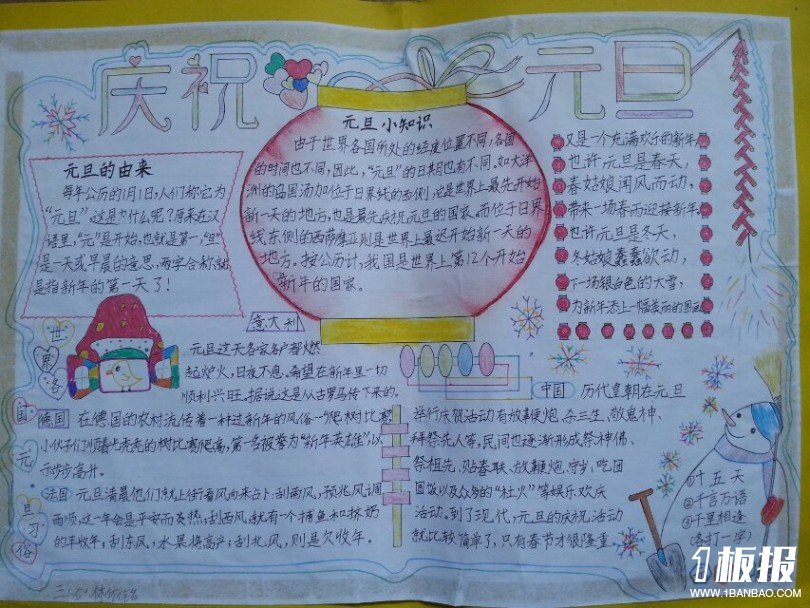 庆祝
元旦
元旦的由来
每年公历的1月1日,人们称它为
“元旦”这是为什么呢?原来在汉
语里,“元”是开始,也就是第一,“旦”
是一天或早晨的意思,两字合称就
是指新年的第一天了!
元旦小知识
由于世界各国所处的经度位置不同,各国
的时间也不同,因此,“元旦”的日期也有不同。如大洋
洲的岛国汤加位于日界线的西侧,它是世界上最先开始
新一天的地方,也是最先庆祝元旦的国家。而位于日界
线东侧的西萨摩亚则是世界上最迟开始新一天的
地方。按公历计,我国是世界上第12个开始
新年的国家。
又是一个充满欢乐的新年,
也许元旦是春天,
春姑娘闻风而动,
带来一场春雨迎接新年。
也许元旦是冬天,
冬姑娘蠢蠢欲动,
下一场银白色的大雪,
为新年添上一幅美丽的图画
世界各国元旦习俗
意大利
元旦这天各家各户都燃
起炉火,日夜不息,希望在新年里一切
顺利兴旺。据说这是从古罗马传下来的。
德国 在德国的农村流传着一种过新年的风俗--“爬树比赛
小伙子们顺着光秃秃的树比赛爬高,第一名被誉为“新年英雄”以
示步步高升。
法国 元旦清晨他们就上街看风向来占卜:刮南风,预兆风调
雨顺,这一年会是平安而炎热;刮西风,就有一个捕鱼和挤奶
的丰收年;刮东风,水果将高产;刮北风,则是欠收年。
中国 历代皇朝在元旦
举行庆贺活动有放鞭炮、杀三生、敬鬼神、
拜祭先人等,民间也逐渐形成祭神佛、
祭祖先、贴春联、放鞭炮、守岁、吃团
圆饭以及众多的“社火”等娱乐欢庆
活动。到了现代,元旦的庆祝活动
就比较简单了,只有春节才很隆重。
①十五天
②千言万语
③千里相逢
(各打一字)
1板报
WWW.1BANBAO.COM